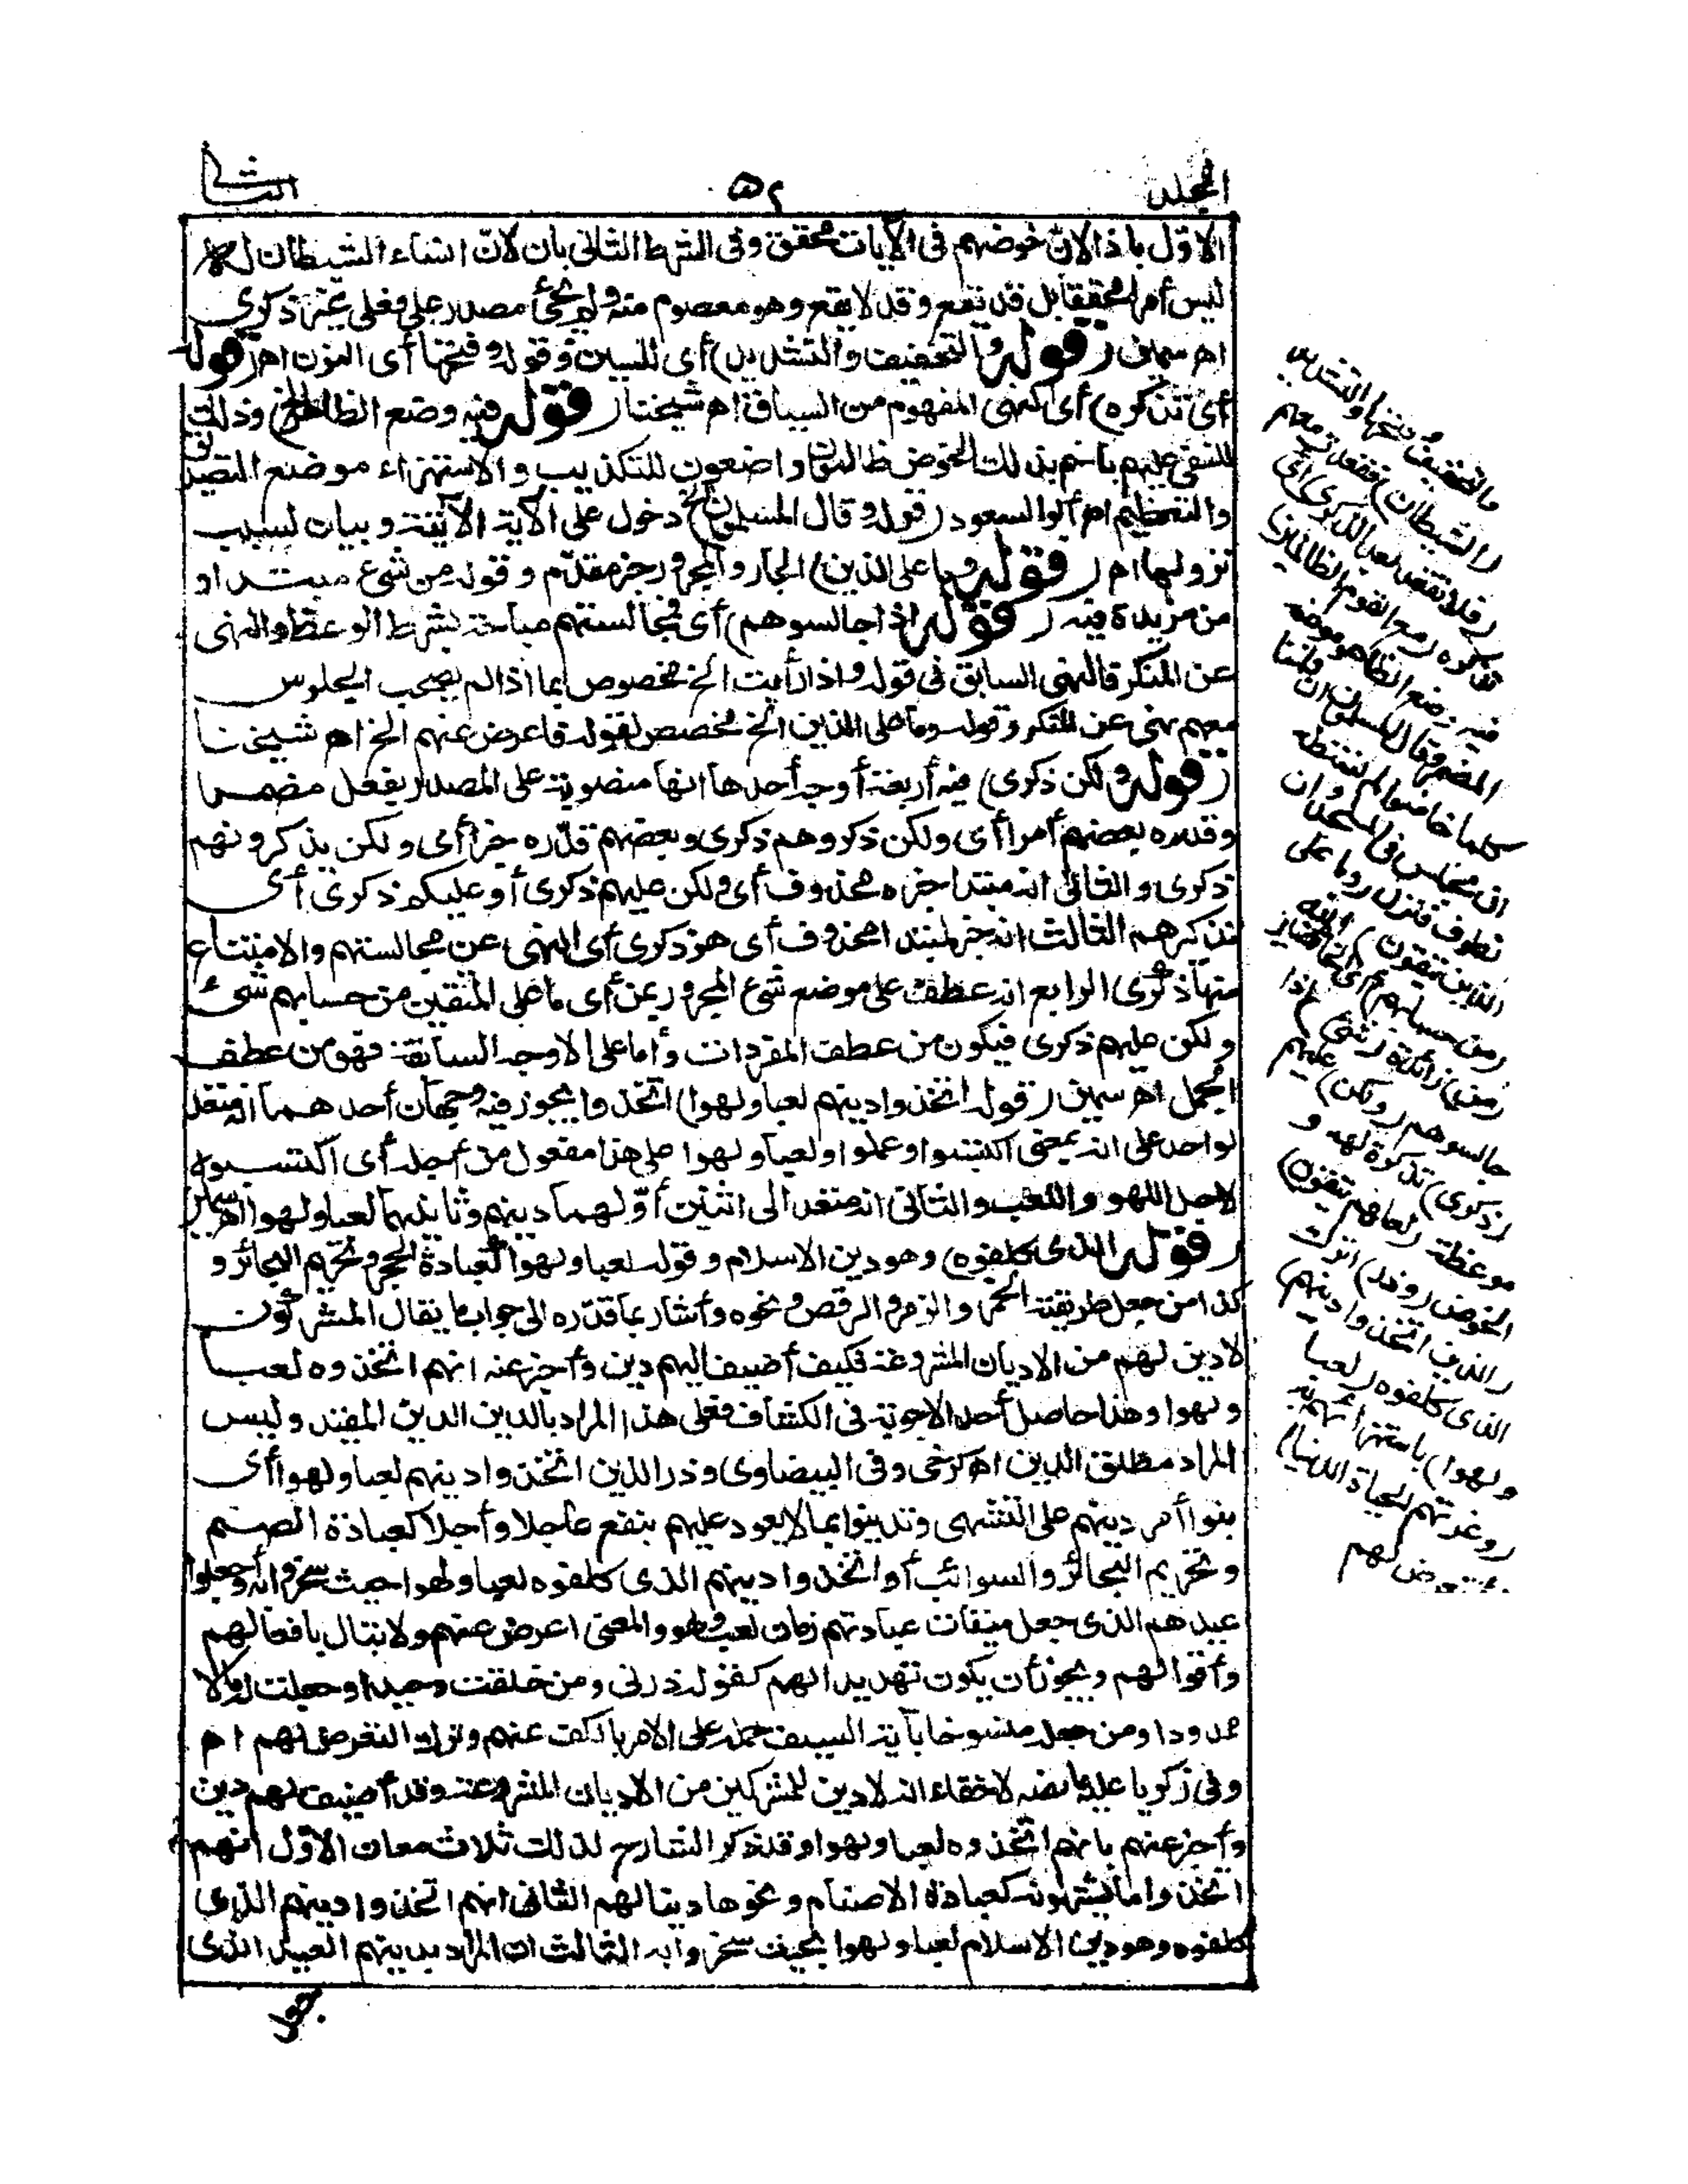 المجلد
٥٢
الثاني
الاوّل باذا لانّ خوضهم فى الآيات محقق وفى الشرط الثانى بان لانّ انساء الشيطان له
ليس أمرا محققا بل قد يقع وقد لا يقع وهو معصوم منه ولم يجئ مصدر على فعلى غير ذكرى
اه سمين (قوله والتخفيف والتشديد) أى للسين وقوله وفتحها أى النون اه (قوله
أى تذكره) أى النهى المفهوم من السياق اه شيخنا (قوله فيه وضع الظاهر الخ) وذلك
للنعى عليهم بانهم بذلك الخوض ظالمون واضعون للتكذيب والاستهزاء موضع التصديق
والتعظيم اه أبو السعود (قوله وقال المسلمون الخ) دخول على الآية الآتية وبيان لسبب
نزولها اه (قوله وما على الذين) الجار والمجرور خبر مقدّم وقوله من شئ مبتدأ و
من مزيدة فيه (قوله اذا جالسوهم) أى فمجالستهم مباحة بشرط الوعظ والنهى
عن المنكر فالنهى السابق فى قوله واذا رأيت الخ مخصوص بما اذا لم يصحب الجلوس
معهم نهى عن المنكر وقوله وما على الذين الخ مخصص لقوله فاعرض عنهم الخ اه شيخنا
(قوله ولكن ذكرى) فيه أربعة أوجه أحدها انها منصوبة على المصدر بفعل مضمر
وقدره بعضهم أمرا أى ولكن ذكروهم ذكرى وبعضهم قدّره خبرا أى ولكن يذكرونهم
ذكرى والثانى انه مبتدا خبره محذوف أى ولكن عليهم ذكرى أو عليكم ذكرى أى
تذكيرهم الثالث انه خبر لمبتدا محذوف أى هو ذكرى أى النهى عن مجالستهم والامتناع
منها ذكرى الرابع انه عطف على موضع شئ المجرور بمن أى ما على المتقين من حسابهم شئ
ولكن عليهم ذكرى فيكون من عطف المفردات وأما على الاوجه السابقة فهو من عطف
الجمل اه سمين (قوله اتخذوا دينهم لعبا ولهوا) اتخذوا يجوز فيه وجهان أحدهما انه متعد
لواحد على انه بمعنى اكتسبوا وعملوا ولعبا ولهوا على هذا مفعول من أجله أى اكتسبوه
لاجل اللهو واللعب والثانى انه متعد الى اثنين أوّلهما دينهم وثانيهما لعبا ولهوا اه سمين
(قوله الذى كلفوه) وهو دين الاسلام وقوله لعبا ولهوا كعبادة الحجر وتحريم البحائر و
كذا من جعل طريقته الخمر والزمر والرقص ونحوه وأشار بما قدّره الى جواب ما يقال المشركون
لا دين لهم من الاديان المشروعة فكيف أضيف اليهم دين وأخبر عنه انهم اتخذوه لعبا
ولهوا وهذا حاصل أحد الاجوبة فى الكشاف فعلى هذا المراد بالدين الدين المقيد وليس
المراد مطلق الدين اه كرخى وفى البيضاوى وذر الذين اتخذوا دينهم لعبا ولهوا أى
بنوا أمر دينهم على التشهى وتدينوا بما لا يعود عليهم بنفع عاجلا وآجلا كعبادة الصنم
وتحريم البحائر والسوائب أو اتخذوا دينهم الذى كلفوه لعبا ولهوا حيث سخروا به أو جعلوا
عيدهم الذى جعل ميقات عبادتهم زمان لعب ولهو والمعنى اعرض عنهم ولا تبال بافعالهم
وأقوالهم ويجوز أن يكون تهديدا لهم كقوله ذرنى ومن خلقت وحيدا وجعلت له مالا
ممدودا ومن جعله منسوخا بآية السيف حمله على الامر بالكف عنهم وترك التعرض لهم اه
وفى زكريا عليه ما نصه لا خفاء انه لا دين للمشركين من الاديان المشروعة وقد أضيف لهم دين
وأخبر عنهم بانهم اتخذوه لعبا ولهوا وقد ذكر الشارح لذلك ثلاث معان الاوّل انهم
اتخذوا ما يشتهونه كعبادة الاصنام ونحوها دينا لهم الثانى انهم اتخذوا دينهم الذى
كلفوه وهو دين الاسلام لعبا ولهوا بحيث سخروا به الثالث ان المراد بدينهم العيد الذى
والتخفيف وفتحها والتشديد
(الشيطان) فقعدت معهم
(فلا تقعد بعد الذكرى) أى
تذكره (مع القوم الظالمين)
فيه وضع الظاهر موضع
المضمر وقال المسلمون ان قمنا
كلما خاضوا لم نستطع
ان نجلس فى المسجد وان
نطوف فنزل (وما على
الذين يتقون) الله
(من حسابهم) أى الخائضين
(من) زائدة (شئ) اذا
جالسوهم (ولكن) عليهم
(ذكرى) تذكرة لهم و
موعظة (لعلهم يتقون)
الخوض (وذر) اترك
(الذين اتخذوا دينهم)
الذى كلفوه (لعبا
ولهوا) باستهزائهم به
(وغرتهم الحياة الدنيا)
لهم